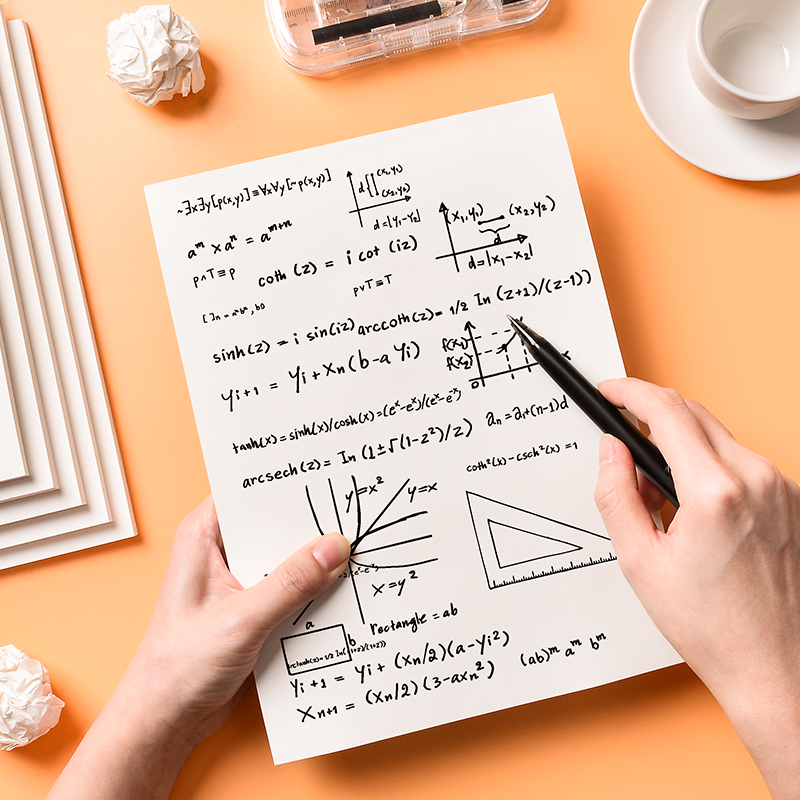 ~∃x∃y[p(x,y)]≡∀x∀y[~p(x,y)]
d{ (x₁,y₁)
(x₂,y₂)
d=|y₁-y₂|
aᵐ × aⁿ = aᵐ⁺ⁿ
(x₁,y₁) (x₂,y₂)
d
d=|x₁-x₂|
p∧T≡p
coth (z) = i cot (iz)
p∨T≡T
sinh(z) = i sin(iz) arccoth(z)= 1/2 In (z+1)/(z-1))
f(x₁)
f(x₂)
0 x
yi+1 = yi+Xn(b-a yi)
tanh(x)=sinh(x)/cosh(x)=(eˣ-eˣ)/(eˣ-e⁻ˣ)
aₙ=a₁+(n-1)d
arcsech(z)= In (1±√(1-z²)/z)
coth²(x)-csch²(x)=1
y=x² y=x
x=y²
a
b rectangle = ab
yi+1 = yi + (Xn/2)(a-yi²)
(ab)ᵐ aᵐ bᵐ
Xn+1 = (Xn/2)(3-axn²)